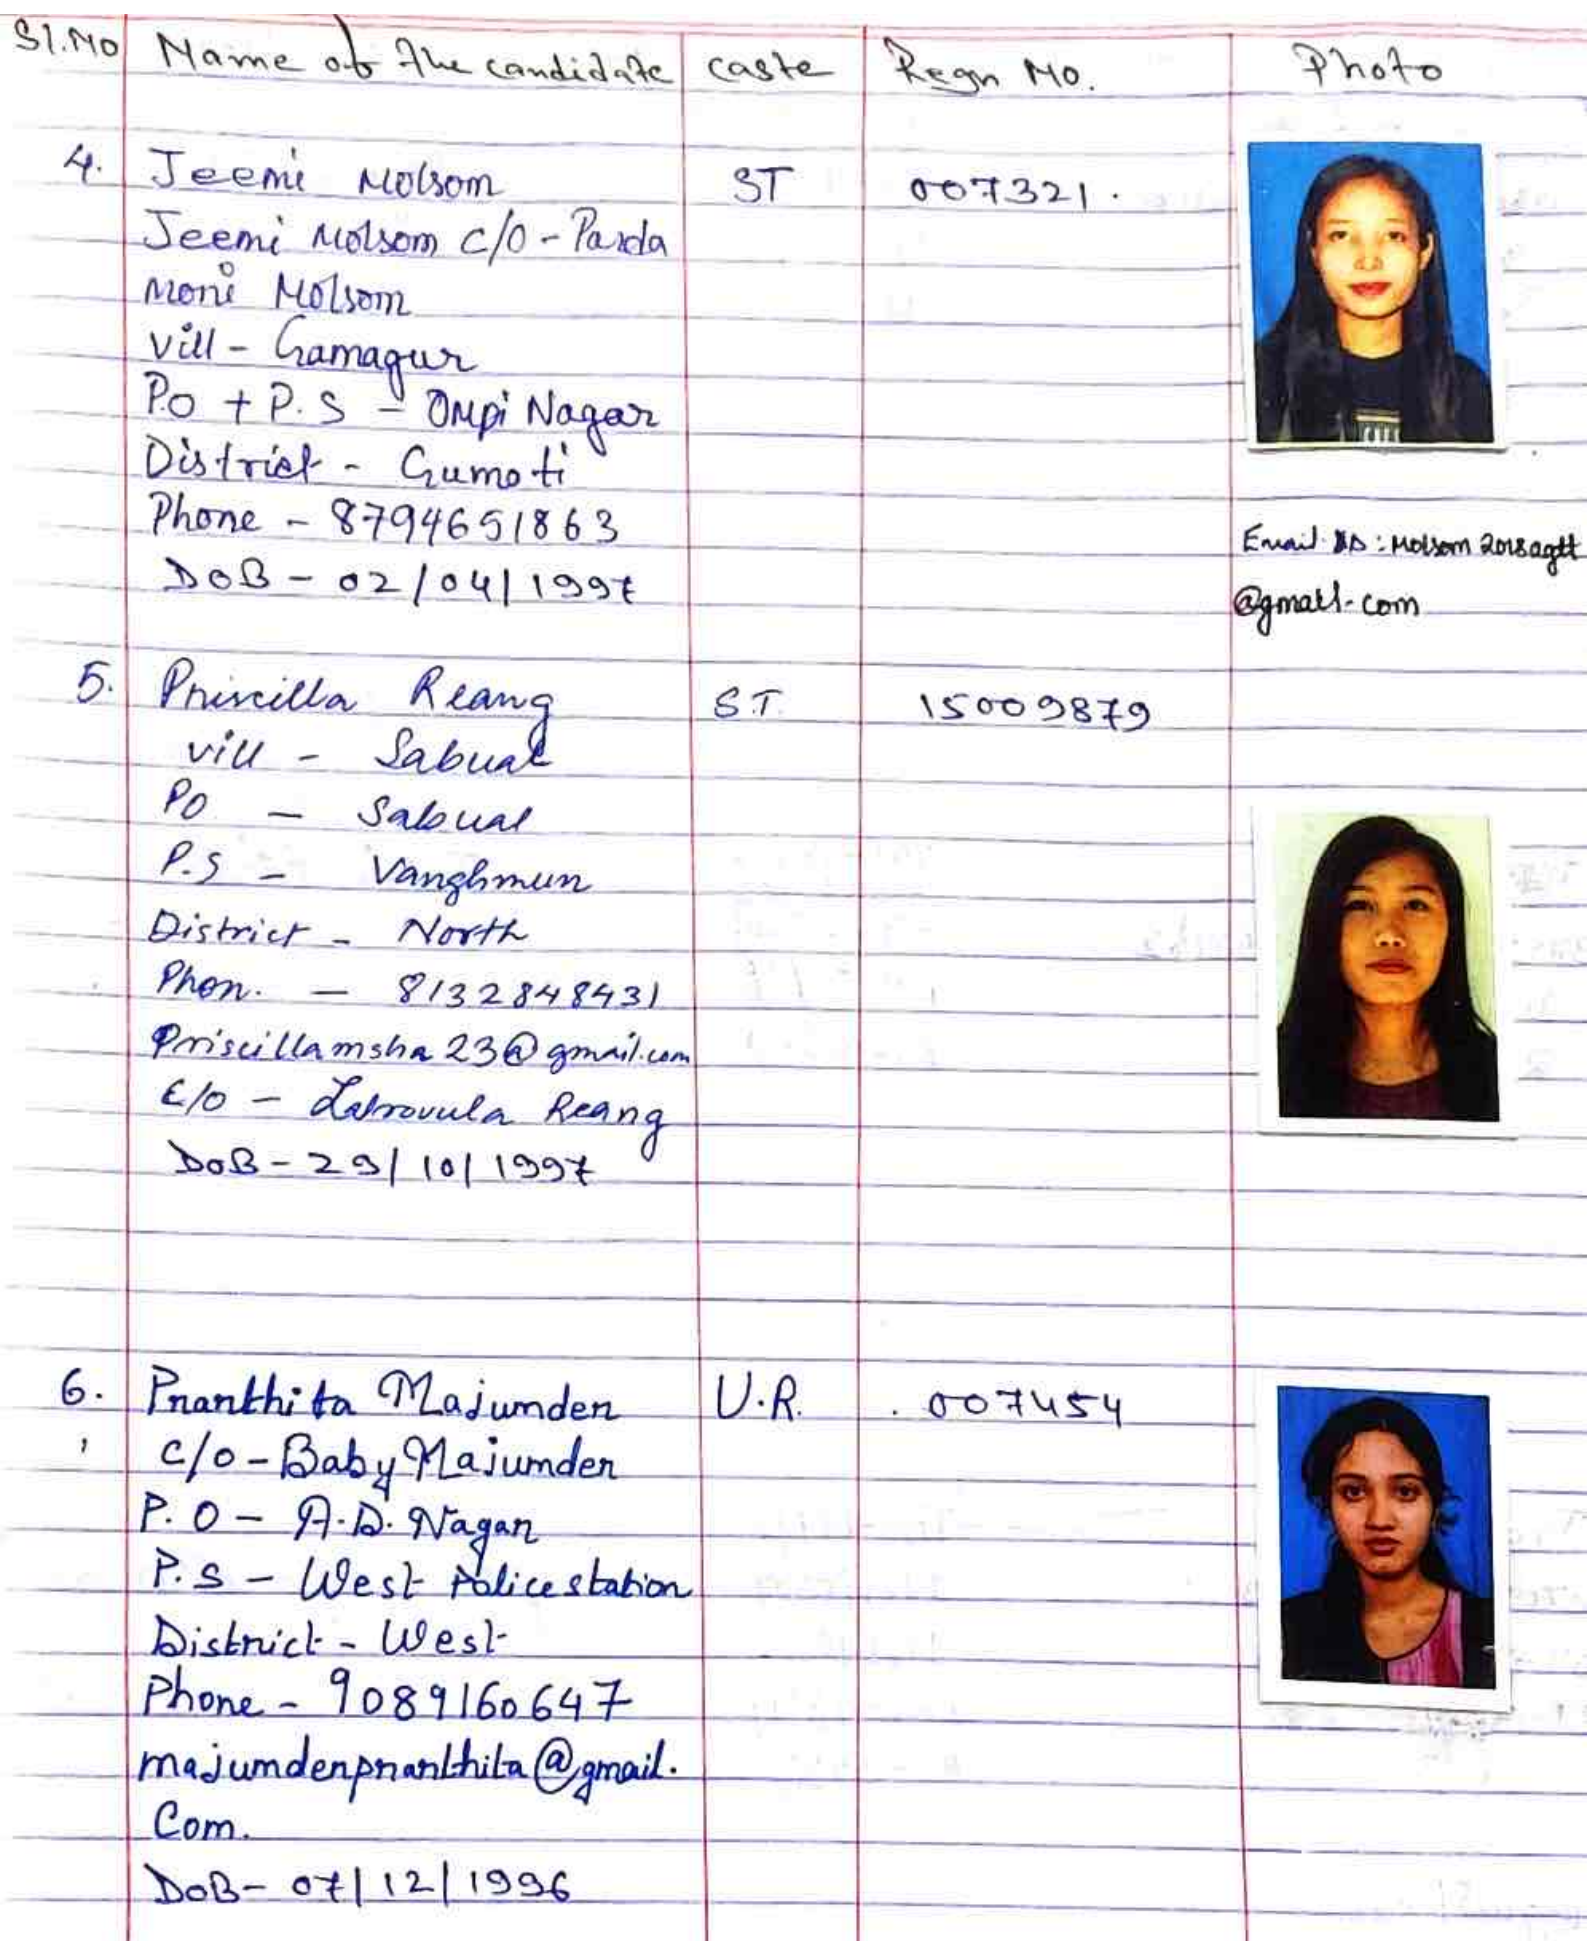 Sl.No Name of the candidate caste Regn No. Photo
4. Jeemi Molsom ST 007321.
Jeemi Molsom C/O - Parda
Moni Molsom
Vill - Gamagur
P.O + P.S - Ompi Nagar
District - Gumoti
Phone - 8794651863
DOB - 02/04/1997
Email ID : Molsom2018agtt
@gmail.com
5. Priscilla Reang S.T. 15009879
Vill - Sabual
PO - Sabual
P.S - Vanghmun
District - North
Phon. - 8132848431
Priscillamsha23@gmail.com
C/O - Reang
DOB - 29/10/1997
6. Pranthita Majumder U.R. 007454
C/o - Baby Majumder
P.O - A.D. Nagar
P.S - West Police station
District - West
Phone - 9089160647
majumderpranthita@gmail.
Com.
DOB - 07/12/1996